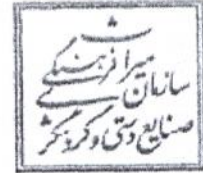 سازمان
میراث فرهنگی
صنایع دستی و گردشگری